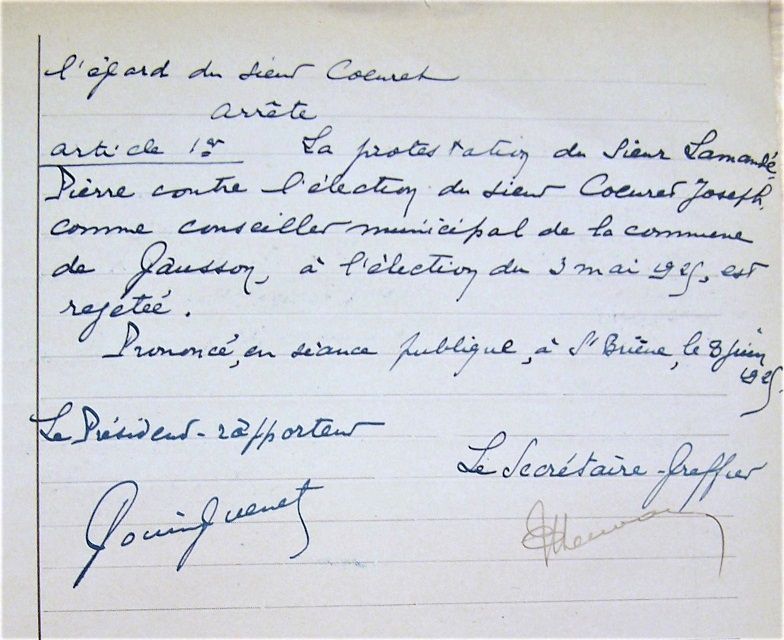 l'égard du sieur Coeuret
arrête
article 1er La protestation du Sieur Lamandé
Pierre contre l'élection du sieur Coeuret Joseph,
comme conseiller municipal de la commune
de Gausson, à l'élection du 3 mai 1925, est
rejetée.
Prononcé, en séance publique, à St Brieuc, le 8 juin
1925.
Le Président-rapporteur
Le Secrétaire-Greffier